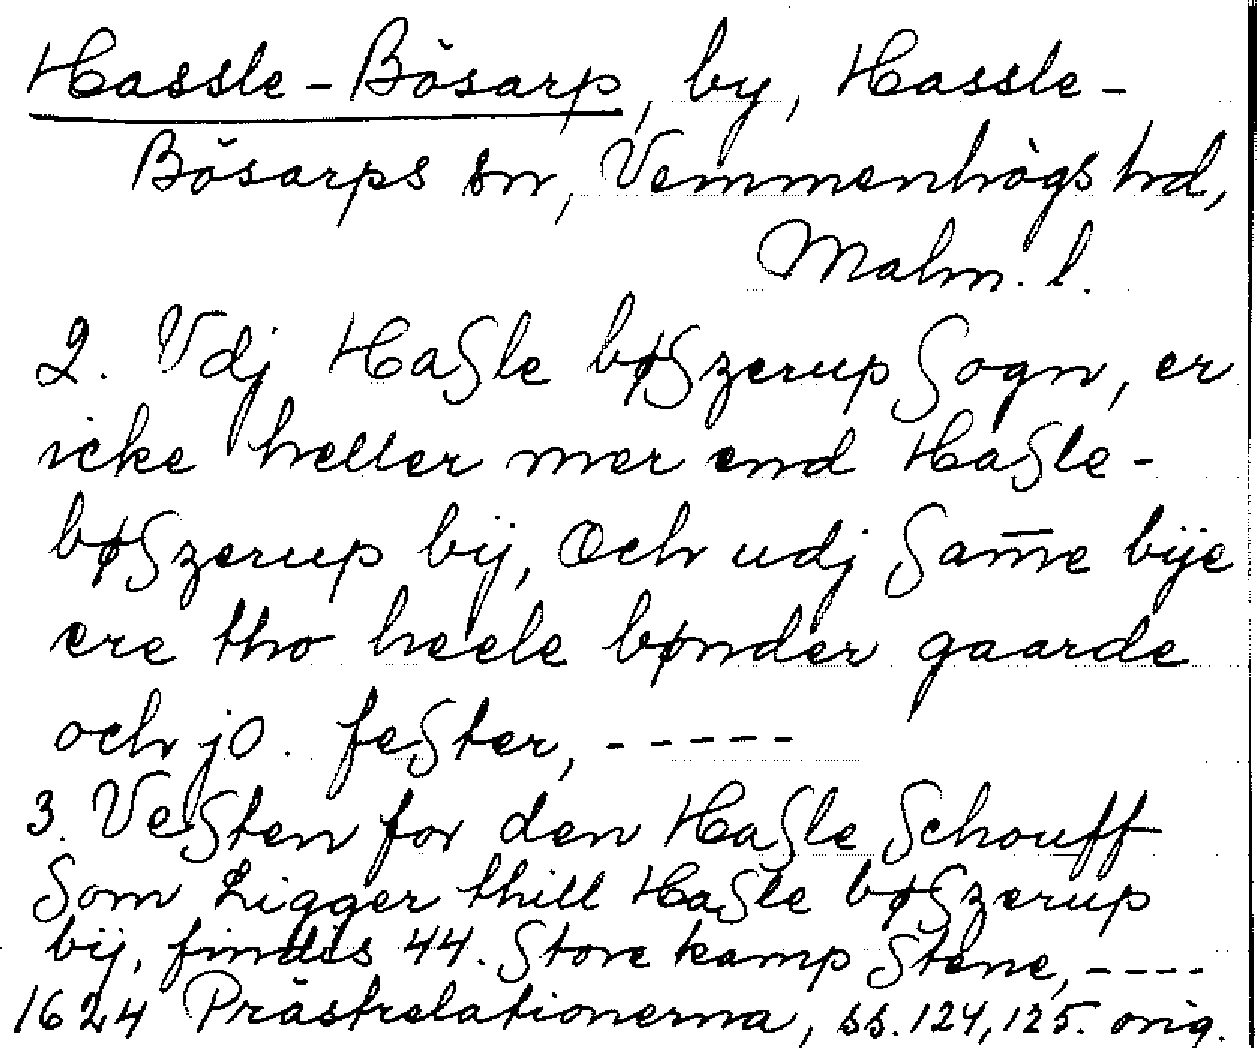 Hassle-Bösarp, by, Hassle-
Bösarps sn, Vemmenhögs hd,
Malm. l.
2. Vdj Haſle bøſzerup ſogn, er
icke heller mer end Haſle-
bøſzerup bij, Och udj ſam̅e bije
ere tho heele bønder gaarde
och jo. feſter, -----
3. Veſten for den Haſle ſchouff
ſom Ligger thill Haſle bøſzerup
bij, findis 44. ſtore kamp ſtene, ----
1624 Prästrelationerna, ss. 124, 125. orig.